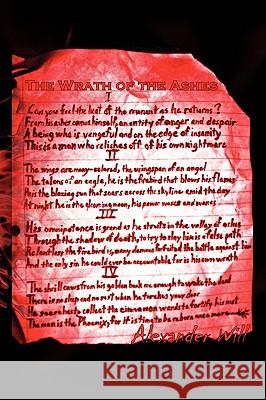 The Wrath of the Ashes
I
Can you feel the heat of the remnant as he returns?
From his ashes comes himself, an entity of anger and despair
A being who is vengeful and on the edge of insanity
This is a man who relishes off of his own nightmare
II
The wings are many-colored, the wingspan of an angel
The talons of an eagle, he is the firebird that blows his flames
He is the blazing sun that soars across the skyline amid the day
At night he is the glooming moon, his power waxes and wanes
III
His omnipotence is grand as he struts in the valley of ashes
Through the shadow of death, to try to slay him is a false path
Relentless the firebird is, many demons forfeited the battle against him
And the only sin he could ever be accountable for is his own wrath
IV
The shrill caws from his golden beak are enough to wake the dead
There is no sleep and no rest when he torches your door
He soars he to collect the cinnamon wands to fortify his nest
The man is the Phoenix, for it is time to be reborn once more
Alexander Will